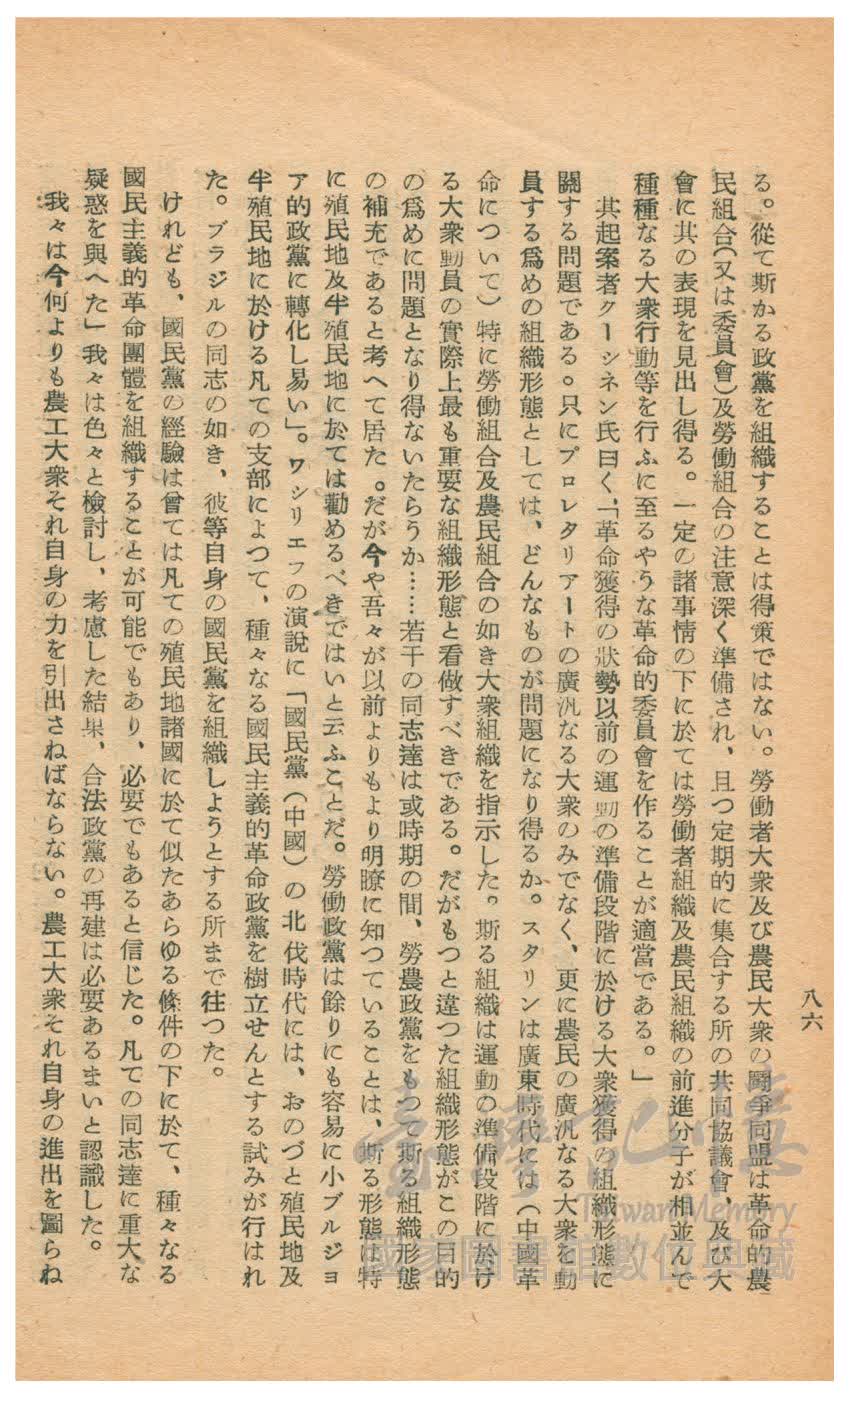 八六
る。從て斯かる政黨を組織することは得策ではない。勞働者大衆及び農民大衆の鬪爭同盟は革命的農
民組合(又は委員會)及勞働組合の注意深く準備され、且つ定期的に集合する所の共同協議會、及び大
會に其の表現を見出し得る。一定の諸事情の下に於ては勞働者組織及農民組織の前進分子が相並んで
種種なる大衆行動等を行ふに至るやうな革命的委員會を作ることが適當である。」
其起案者クーシネン氏曰く、「革命獲得の狀勢以前の運動の準備段階に於ける大衆獲得の組織形態に
關する問題である。只にプロレタリアートの廣汎なる大衆のみでなく、更に農民の廣汎なる大衆を動
員する爲めの組織形態としては、どんなものが問題になり得るか。スタリンは廣東時代には(中國革
命について)特に勞働組合及農民組合の如き大衆組織を指示した。斯る組織は運動の準備段階に於け
る大衆動員の實際上最も重要な組織形態と看做すべきである。だがもつと違つた組織形態がこの目的
の爲めに問題となり得ないたらうか……若干の同志達は或時期の間、勞農政黨をもつて斯る組織形態
の補充であると考へて居た。だが今や吾々が以前よりもより明瞭に知つていることは、斯る形態は特
に殖民地及半殖民地に於ては勸めるべきではいと云ふことだ。勞働政黨は餘りにも容易に小ブルジョ
ア的政黨に轉化し易い」。ワシリエフの演說に「國民黨(中國)の北伐時代には、おのづと殖民地及
半殖民地に於ける凡ての支部によつて、種々なる國民主義的革命政黨を樹立せんとする試みが行はれ
た。ブラジルの同志の如き、彼等自身の國民黨を組織しようとする所まで往つた。
けれども、國民黨の經驗は曾ては凡ての殖民地諸國に於て似たあらゆる條件の下に於て、種々なる
國民主義的革命團體を組織することが可能でもあり、必要でもあると信じた。凡ての同志達に重大な
疑惑を與へた」我々は色々と檢討し、考慮した結果、合法政黨の再建は必要あるまいと認識した。
我々は今何よりも農工大衆それ自身の力を引出さねばならない。農工大衆それ自身の進出を圖らね
臺灣記憶
Taiwan Memory
國家圖書館數位典藏